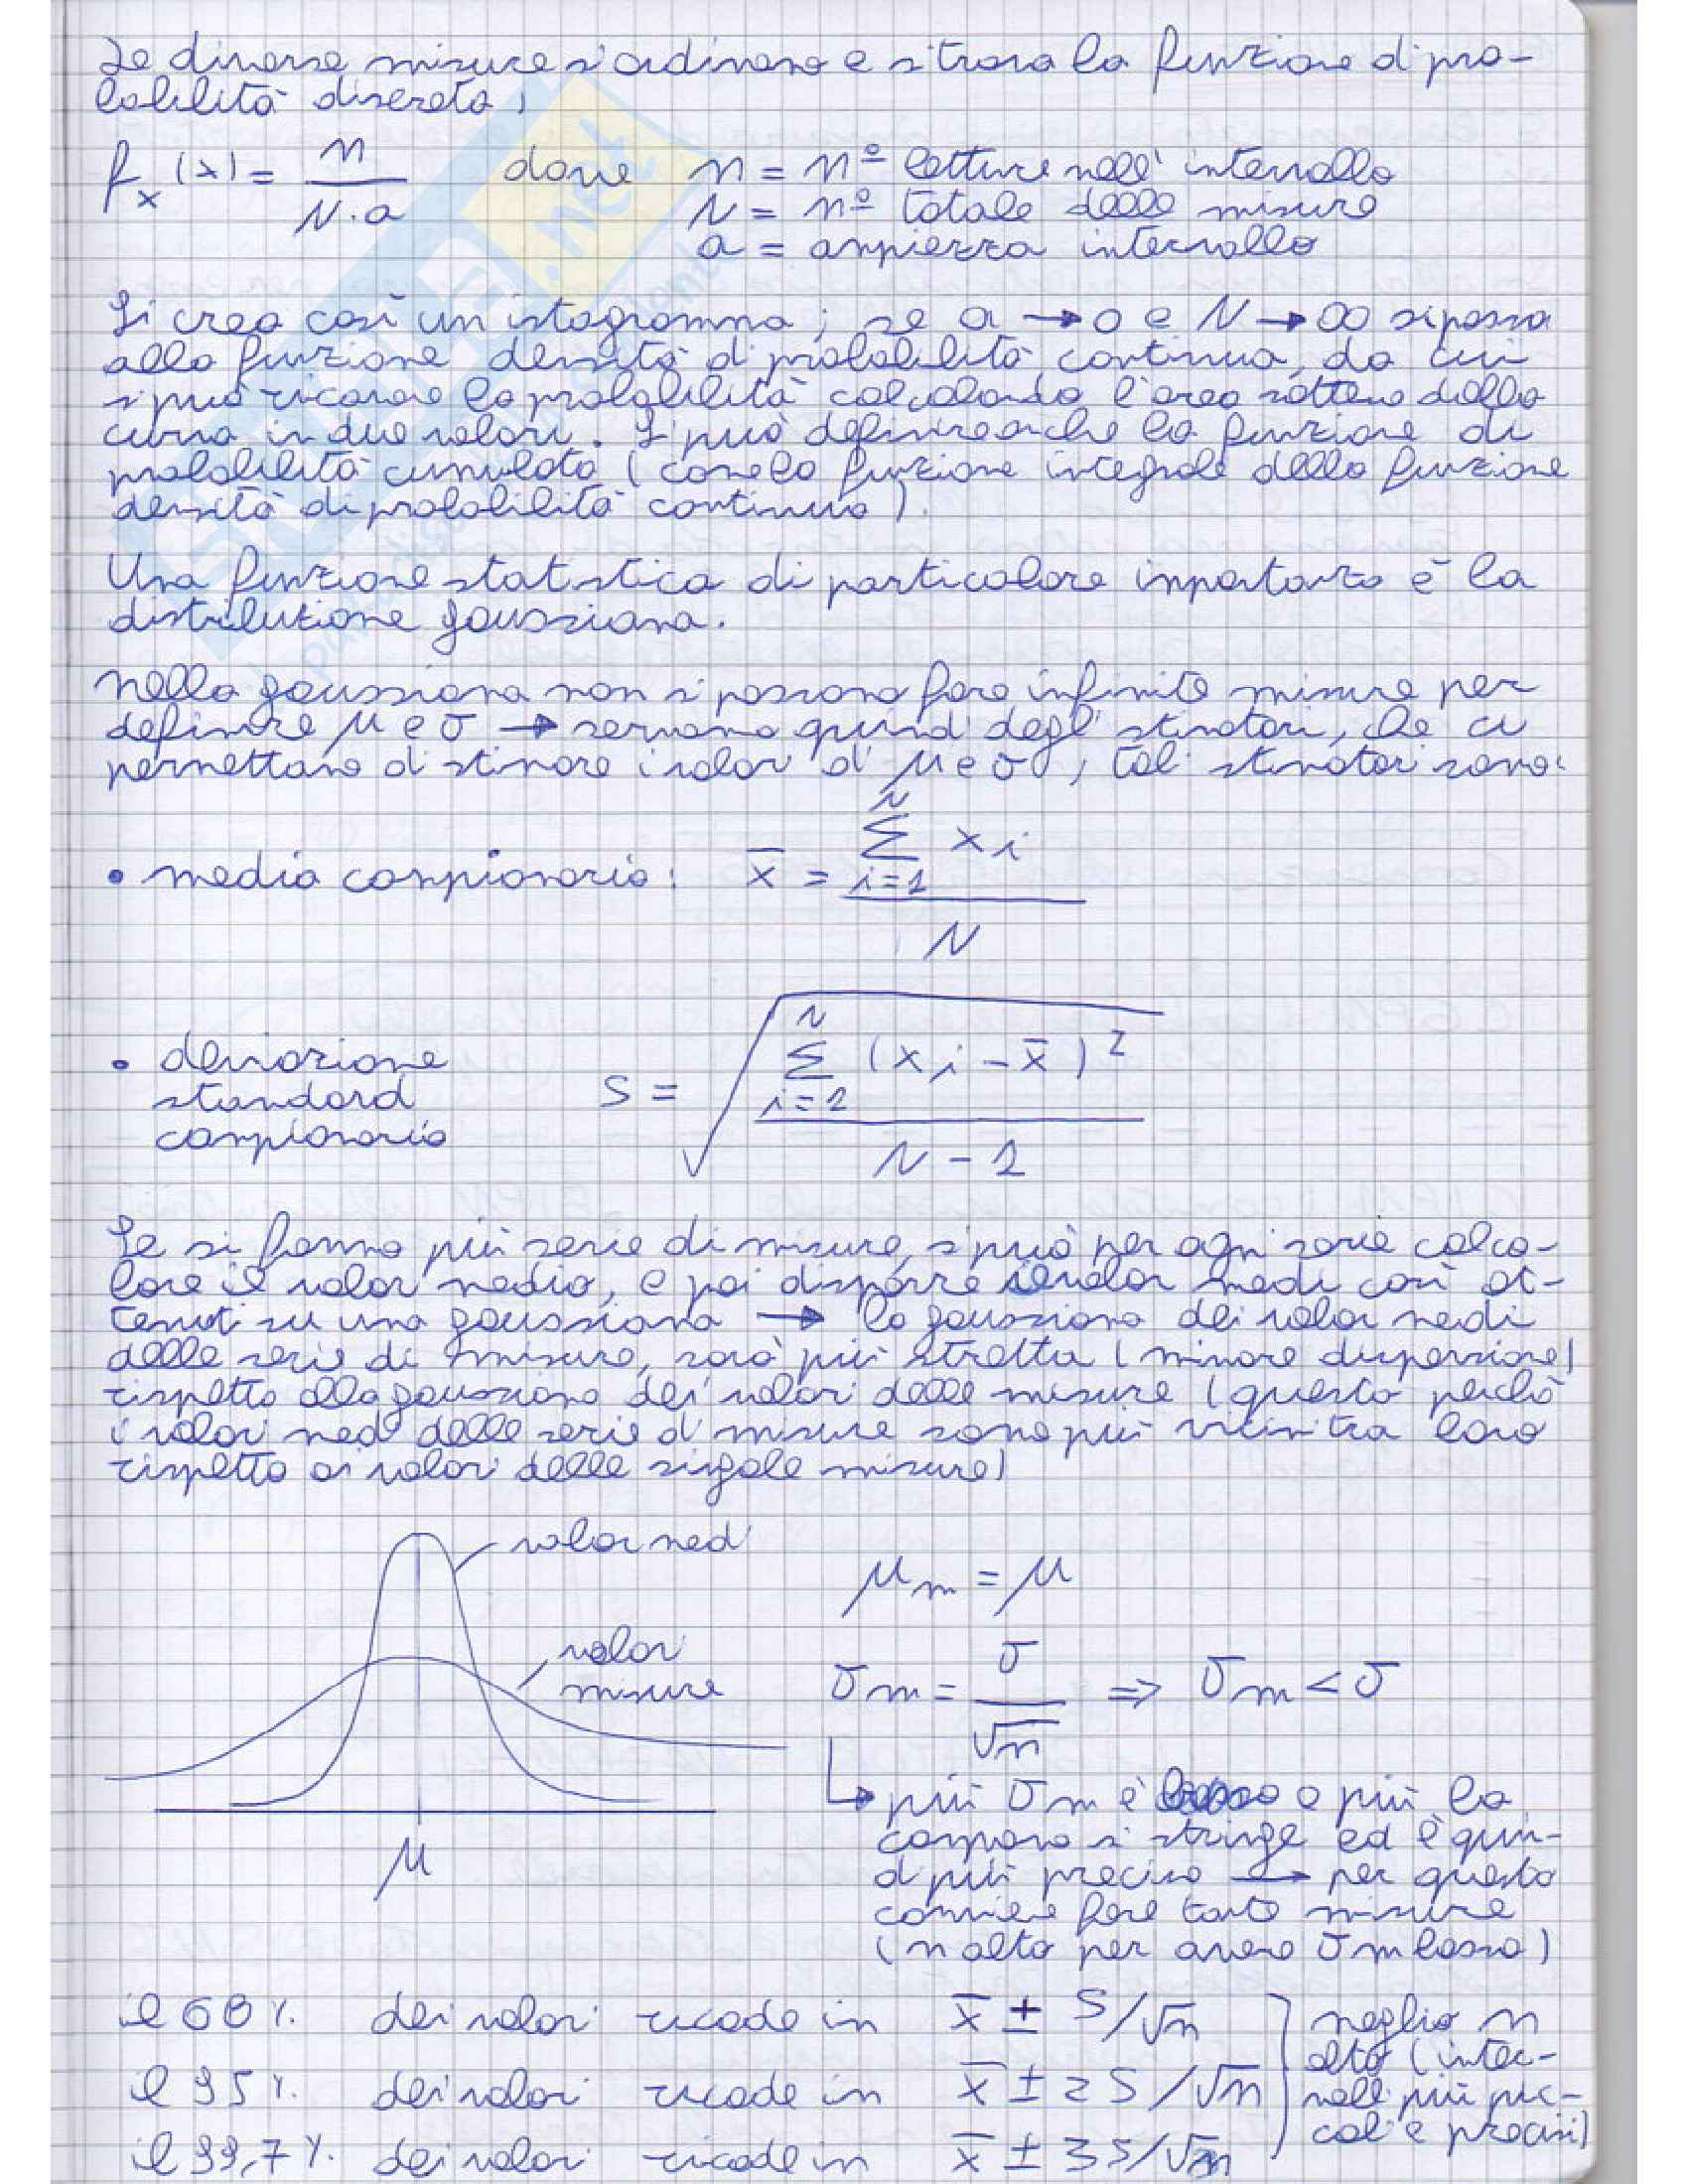 Le diverse misure si ordinano e si trova la funzione di pro-
babilità discreta:
fx (x) = n / N·a dove n = nº letture nell'intervallo
N = nº totale delle misure
a = ampiezza intervallo
Si crea così un istogramma; se a → 0 e N → ∞ si passa
alla funzione densità di probabilità continua, da cui
si può ricavare la probabilità calcolando l'area sottesa dalla
curva in due valori. Si può definire anche la funzione di
probabilità cumulata (come la funzione integrale della funzione
densità di probabilità continua).
Una funzione statistica di particolare importanza è la
distribuzione gaussiana.
Nella gaussiana non si possono fare infinite misure per
definire μ e σ → servono quindi degli stimatori, che ci
permettano di stimare i valori di μ e σ, tali stimatori sono:
• media campionaria: x̄ = Σ_{i=1}^{N} xi / N
• deviazione
standard
campionaria
S = √( Σ_{i=1}^{N} (xi - x̄)² / (N - 1) )
Se si fanno più serie di misure, si può per ogni serie calco-
lare il valor medio, e poi disporre i valori medi così ot-
tenuti su una gaussiana → la gaussiana dei valori medi
delle serie di misure, sarà più stretta (minore dispersione)
rispetto alla gaussiana dei valori delle misure (questo perché
i valori medi delle serie di misure sono più vicini tra loro
rispetto ai valori delle singole misure)
valori medi
valori
misure
μ
μm = μ
σm = σ / √n ⇒ σm < σ
più σm è basso e più la
campana si stringe ed è quin-
di più precisa → per questo
conviene fare tante misure
(n alto per avere σm basso)
il 68%. dei valori ricade in x̄ ± S/√n
il 95%. dei valori ricade in x̄ ± 2S/√n
il 99,7%. dei valori ricade in x̄ ± 3S/√n
meglio n
alto (inter-
valli più pic-
coli e precisi)